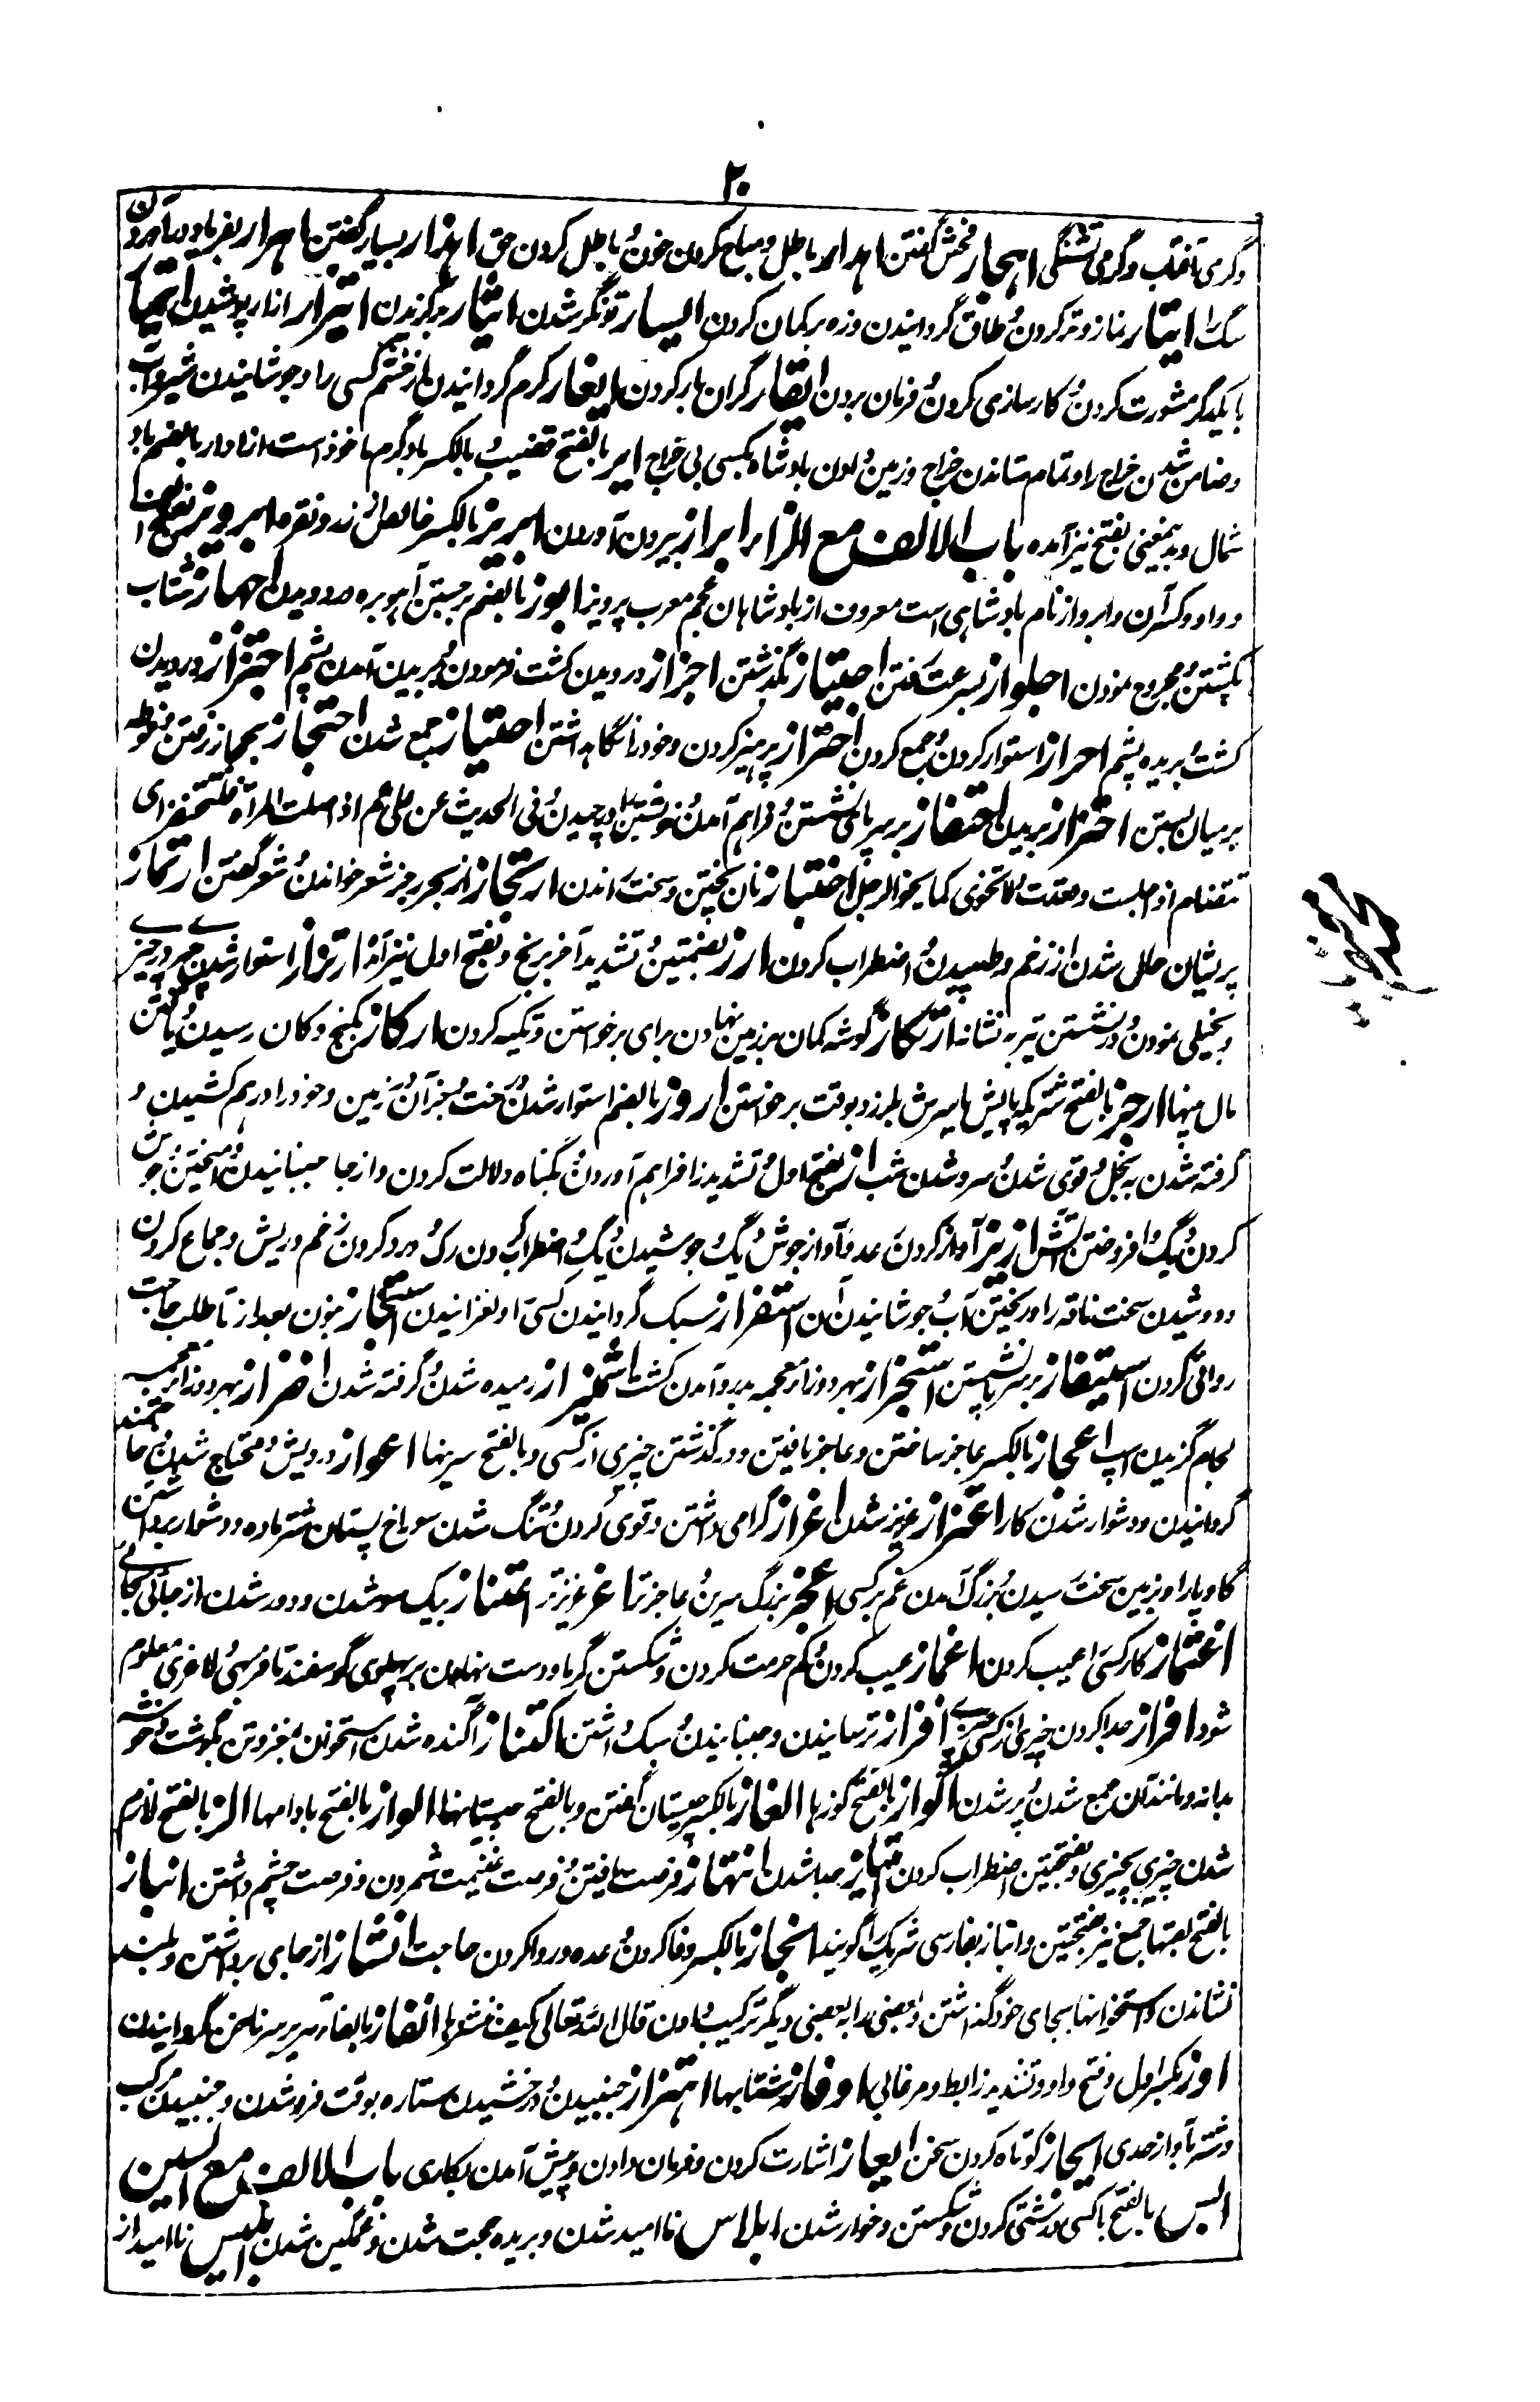 ۲۰
وگرمی آفتاب وگرمی تشنگی اهجار فحش گفتن اهدار باطل ومباح کردن خون و باطل کردن حق اهذار بسیار گفتن اهرار بفریاد در آوردن
سگ را ایتار نماز وتر کردن و طاق گردانیدن وزه بر کمان کردن ایسار تونگر شدن ایثار برگزیدن ایتزار ازار پوشیدن ایتمار
با یکدیگر مشورت کردن و کارسازی کردن و فرمان بردن ایقار گران بار کردن ایغار گرم گردانیدن از خشم کسی را و جوشانیدن شیر و آب
وضامن شدن خراج را و تمام ستاندن خراج و زمین دادن بادشاه بکسی بی خراج ایر بالفتح قضیب و بالکسر باد گرم ماخوذ است از اوار بالضم باد
شمال و بدینمعنی بفتح نیز آمده باب الالف مع الزا ابراز بیرون آوردن ابریز بالکسر خالص از زر و نقره ابرویز بفتح
و واو و کسر آن و ابرواز نام بادشاهی است معروف از بادشاهان عجم معرب پرویز ابوز بالضم برجستن آهو بره در دویدن اجهاز شتاب
بکشتن مجروح نمودن اجلواز بسرعت رفتن اجتیاز بگذشتن اجزاز درویدن کشت فرمودن و ببریدن آمدن پشم اجتزاز درویدن
کشت و بریده پشم احراز استوار کردن و جمع کردن احتراز پرهیز کردن وخود را نگاهداشتن احتیاز جمع شدن احتجاز بحجاز رفتن و فوطه
بر میان بستن احتزاز بریدن احتفاز بر سر پای نشستن و فراهم آمدن خویشتن را و پیچیدن و فی الحدیث عن علی اذا صلت المراة فلتحتفز ای
تتضام اذا جلست و سجدت و لا تخوی کما یخوی الرجل اختباز نان پختن و سخت راندن ارتجاز از بحر رجز شعر خواندن و شعر گفتن ارتماز
پریشان حال شدن از زخم و طپیدن و اضطراب کردن ارز بضمتین و تشدید آخر برنج و بفتح اول نیز آمده ارتزاز استوار شدن چیزی در چیزی
و بخیلی نمودن و درنشستن تیر به نشانه ارتکاز گوشه کمان بر زمین نهادن برای برخواستن و تکیه کردن ارکاز بگنج و کان رسیدن و یافتن
مال پنهان ارجز بالفتح شتریکه پایش یا سرش بلرزد بوقت برخواستن اروز بالضم استوار شدن درخت و جز آن در زمین وخود را در هم کشیدن و
گرفته شدن به بخل و قوی شدن و سرد شدن شب از بفتح اول و تشدید زا فراهم آوردن و بگناه دلالت کردن و از جا جنبانیدن و آمیختن و جوش
کردن دیگ و افروختن آتش ازیز آواز کردن رعد و آواز جوش دیگ و جوشیدن دیگ و اضطراب کردن رگ و درد کردن زخم و ریش و جماع کردن
و دوشیدن سخت ناقه را و ریختن آب و جوشانیدن آن استفزاز سبک گردانیدن کسی را و لغزانیدن استنجاز بنون بعد از تا طلب حاجت
روائی کردن استیفاز بر سر پا نشستن استجزاز بهر دو زا معجمه بدرو آمدن کشت اشمئزاز رمیده شدن و گرفته شدن اضزاز بهر دو زا معجمه
لجام گزیدن اسپ اعجاز بالکسر عاجز ساختن و عاجز یافتن و درگذشتن چیزی از کسی و بالفتح سرینها اعواز درویش و محتاج شدن و حاجتمند
گردانیدن و دشوار شدن کار اعتزاز عزیز شدن اعزاز گرامی داشتن و قوی کردن و تنگ شدن سوراخ پستان شتر ماده و دشوار برداشتن
گاو پا را و بزمین سخت رسیدن و بزرگ آمدن غم بر کسی اعجز بزرگ سرین و عاجزتر اعز عزیزتر اعتناز بیک سو شدن و دور شدن از جائی بجائی
اغتماز کار کسی را عیب کردن اغماز عیب کردن و کم حرمت کردن و شکستن گرما و دست نهادن بر پهلوی گوسفند تا فربهی و لاغری معلوم
شود افراز جدا کردن چیزی از کسی یا چیزی افزاز ترسانیدن و جنبانیدن و سبک داشتن اکتناز آگنده شدن استخوان بمغز و تن بگوشت و خوشه
بدانه و مانند آن و جمع شدن و پر شدن اکواز بالفتح کوزها الغاز بالکسر چیستان گفتن و بالفتح چیستانها الواز بالفتح بادامها الز بالفتح لازم
شدن چیزی بچیزی و بفتحتین اضطراب کردن امتیاز جدا شدن انتهاز فرصت یافتن و فرصت غنیمت شمردن و فرصت چشم داشتن انباز
بالفتح لقبها جمع نبز بفتحتین و انباز بفارسی شریک را گویند انجاز بالکسر وفا کردن وعده و روا کردن حاجت انشاز از جای برداشتن و بلند
نشاندن و استخوانها بجای خود گذاشتن و بعضی را به بعضی دیگر ترکیب دادن قال الله تعالی کیف ننشزها انفاز بالفا تیر بر سر ناخن گردانیدن
اوز بکسر اول و فتح واو و تشدید زا بط و مرغابی اوفاز شتابها اهتزاز جنبیدن و درخشیدن ستاره بوقت فرو شدن و جنبیدن مرکب
و شتر بآواز حدی ایجاز کوتاه کردن سخن ایعاز اشارت کردن و فرمان دادن و پیش آمدن بکاری باب الالف مع السین
ابس بالفتح با کسی درشتی کردن و شکستن و خوار شدن ابلاس ناامید شدن و بریده حجت شدن و غمگین شدن ابلیس ناامید از